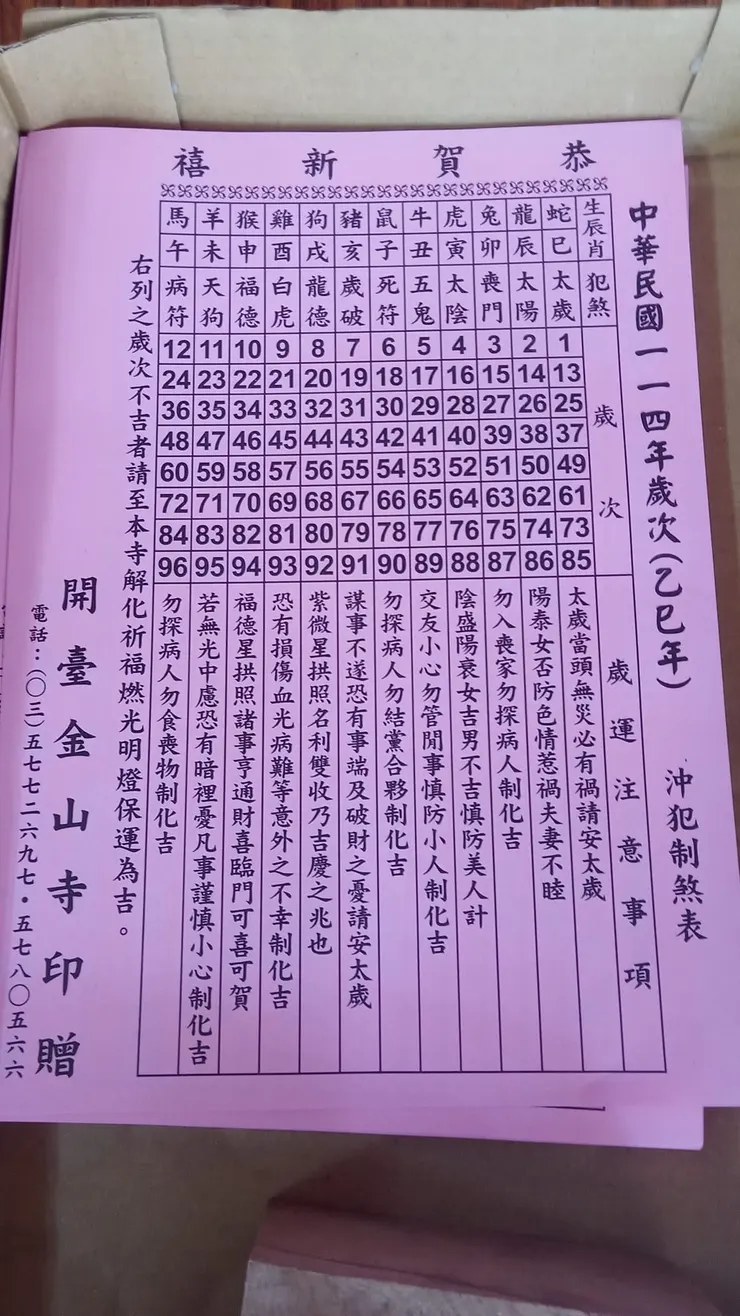 恭賀新禧
中華民國一一四年歲次(乙巳年)
沖犯制煞表
生辰肖 犯煞 歲次 歲運注意事項
蛇 巳 太歲 1 13 25 37 49 61 73 85 太歲當頭無災必有禍請安太歲
龍 辰 太陽 2 14 26 38 50 62 74 86 陽泰女否防色情惹禍夫妻不睦
兔 卯 喪門 3 15 27 39 51 63 75 87 勿入喪家勿探病人制化吉
虎 寅 太陰 4 16 28 40 52 64 76 88 陰盛陽衰女吉男不吉慎防美人計
牛 丑 五鬼 5 17 29 41 53 65 77 89 交友小心勿管閒事慎防小人制化吉
鼠 子 死符 6 18 30 42 54 66 78 90 勿探病人勿結黨合夥制化吉
豬 亥 歲破 7 19 31 43 55 67 79 91 謀事不遂恐有事端及破財之憂請安太歲
狗 戌 龍德 8 20 32 44 56 68 80 92 紫微星拱照名利雙收乃吉慶之兆也
雞 酉 白虎 9 21 33 45 57 69 81 93 恐有損傷血光病難等意外之不幸制化吉
猴 申 福德 10 22 34 46 58 70 82 94 福德星拱照諸事亨通財喜臨門可喜可賀
羊 未 天狗 11 23 35 47 59 71 83 95 若無光中慮恐有暗裡憂凡事謹慎小心制化吉
馬 午 病符 12 24 36 48 60 72 84 96 勿探病人勿食喪物制化吉
右列之歲次不吉者請至本寺解化祈福燃光明燈保運為吉。
開臺金山寺印贈
電話:(〇三)五七七二六九七・五七八〇五六六